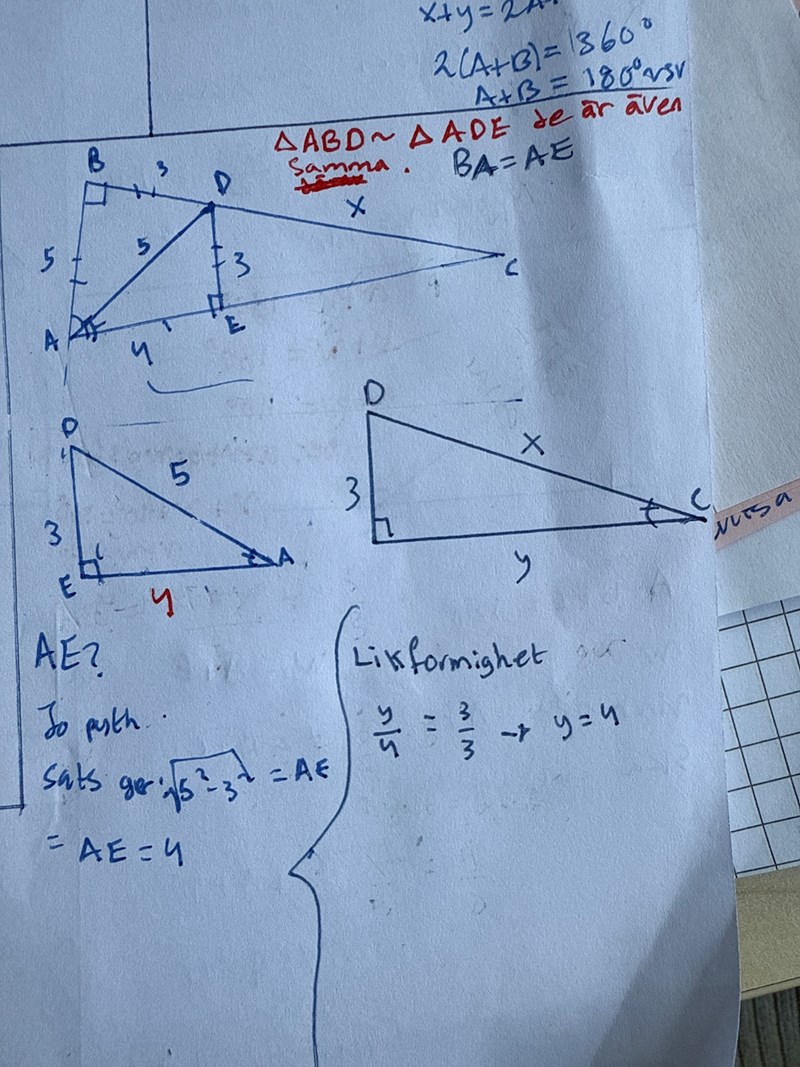 x+y = 2A
2(A+B) = 360°
A+B = 180° vsv
△ABD ~ △ADE de är även
samma. BA = AE
B
3
D
x
5
5
3
C
A
4
E
D
5
3
E
A
4
D
x
3
C
y
AE?
Jo pyth.
sats ger: √5²-3² = AE
= AE = 4
Likformighet
y/4 = 3/3 → y = 4